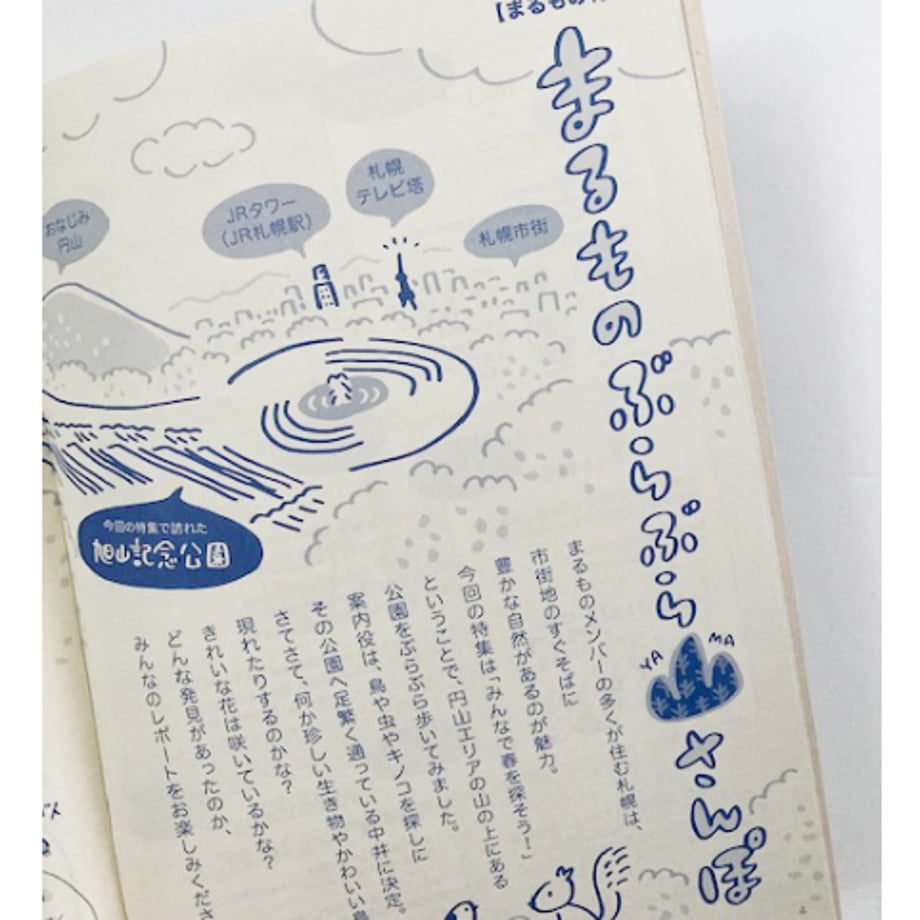 【まるもの
まるもののぶらぶら
YA MA
さんぽ
札幌
テレビ塔
JRタワー
(JR札幌駅)
札幌市街
おなじみ
円山
今回の特集で訪れた
旭山記念公園
まるものメンバーの多くが住む札幌は、
市街地のすぐそばに
豊かな自然があるのが魅力。
今回の特集は「みんなで春を探そう！」
ということで、円山エリアの山の上にある
公園をぶらぶら歩いてみました。
案内役は、鳥や虫やキノコを探しに
その公園へ足繁く通っている中井に決定。
さてさて、何か珍しい生き物やかわいい鳥
現れたりするのかな？
きれいな花は咲いているかな？
どんな発見があったのか、
みんなのレポートをお楽しみくださ